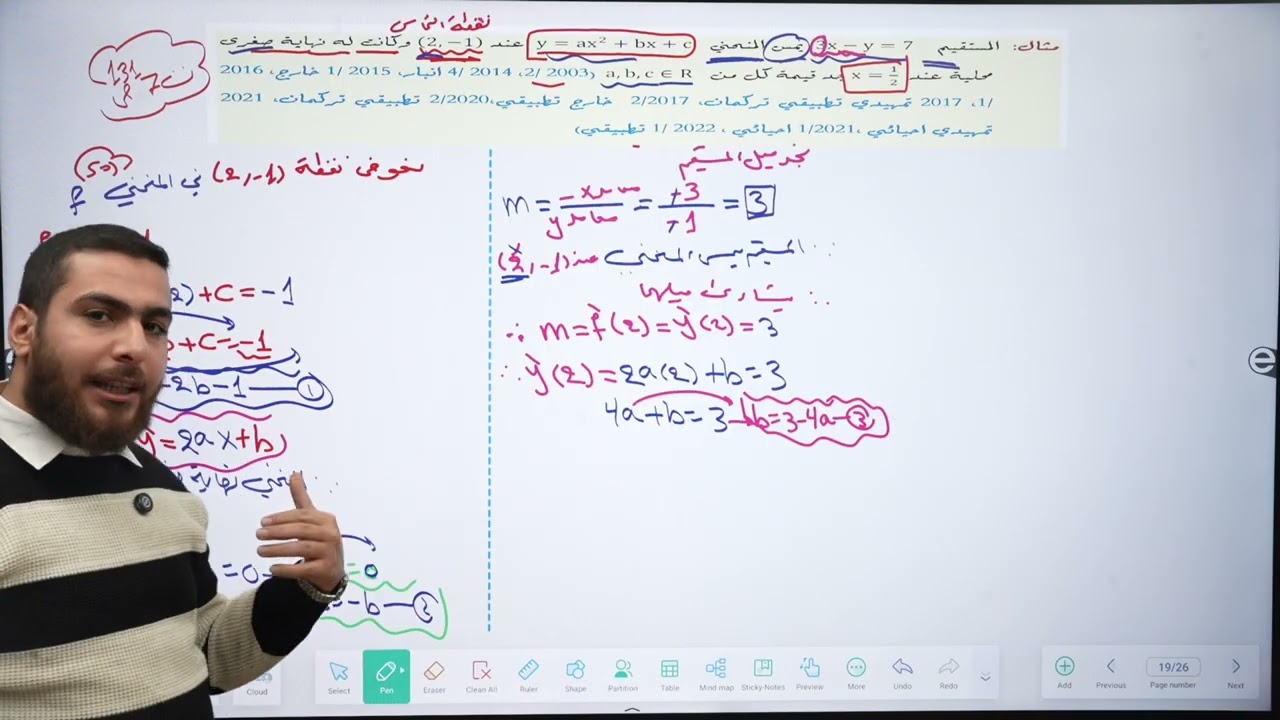 نقطة التماس
مثال: المستقيم 3x − y = 7 يمس المنحني y = ax² + bx + c عند (2, −1) وكانت له نهاية صغرى
محلية عند x = 1/2 جد قيمة كل من a, b, c ∈ R (2003 /2، 2014 /4 انبار، 2015 /1 خارج، 2016
/1، 2017 تمهيدي تطبيقي تركمان، 2/2017 خارج تطبيقي،2/2020 تطبيقي تركمان، 2021
تمهيدي احيائي ،1/2021 احيائي ، 2022 /1 تطبيقي)
نعوض نقطة (2,-1) في المنحني f
+c=-1
+c=-1
2b-1 ①
y=2ax+b
=0
=0
-b ③
نجد ميل المستقيم
m = -معامل x / معامل y = +3 / +1 = 3
∵ المستقيم يمس المنحني عند (2,-1)
x
∴ يتساوى ميلهما
∴ m=f(2)=y(2)=3
∴ y(2)=2a(2)+b=3
4a+b=3 b=3-4a ②
Cloud
Select
Pen
Eraser
Clean All
Ruler
Shape
Partition
Table
Mind map
Sticky-Notes
Preview
More
Undo
Redo
Add
Previous
19/26
Page number
Next